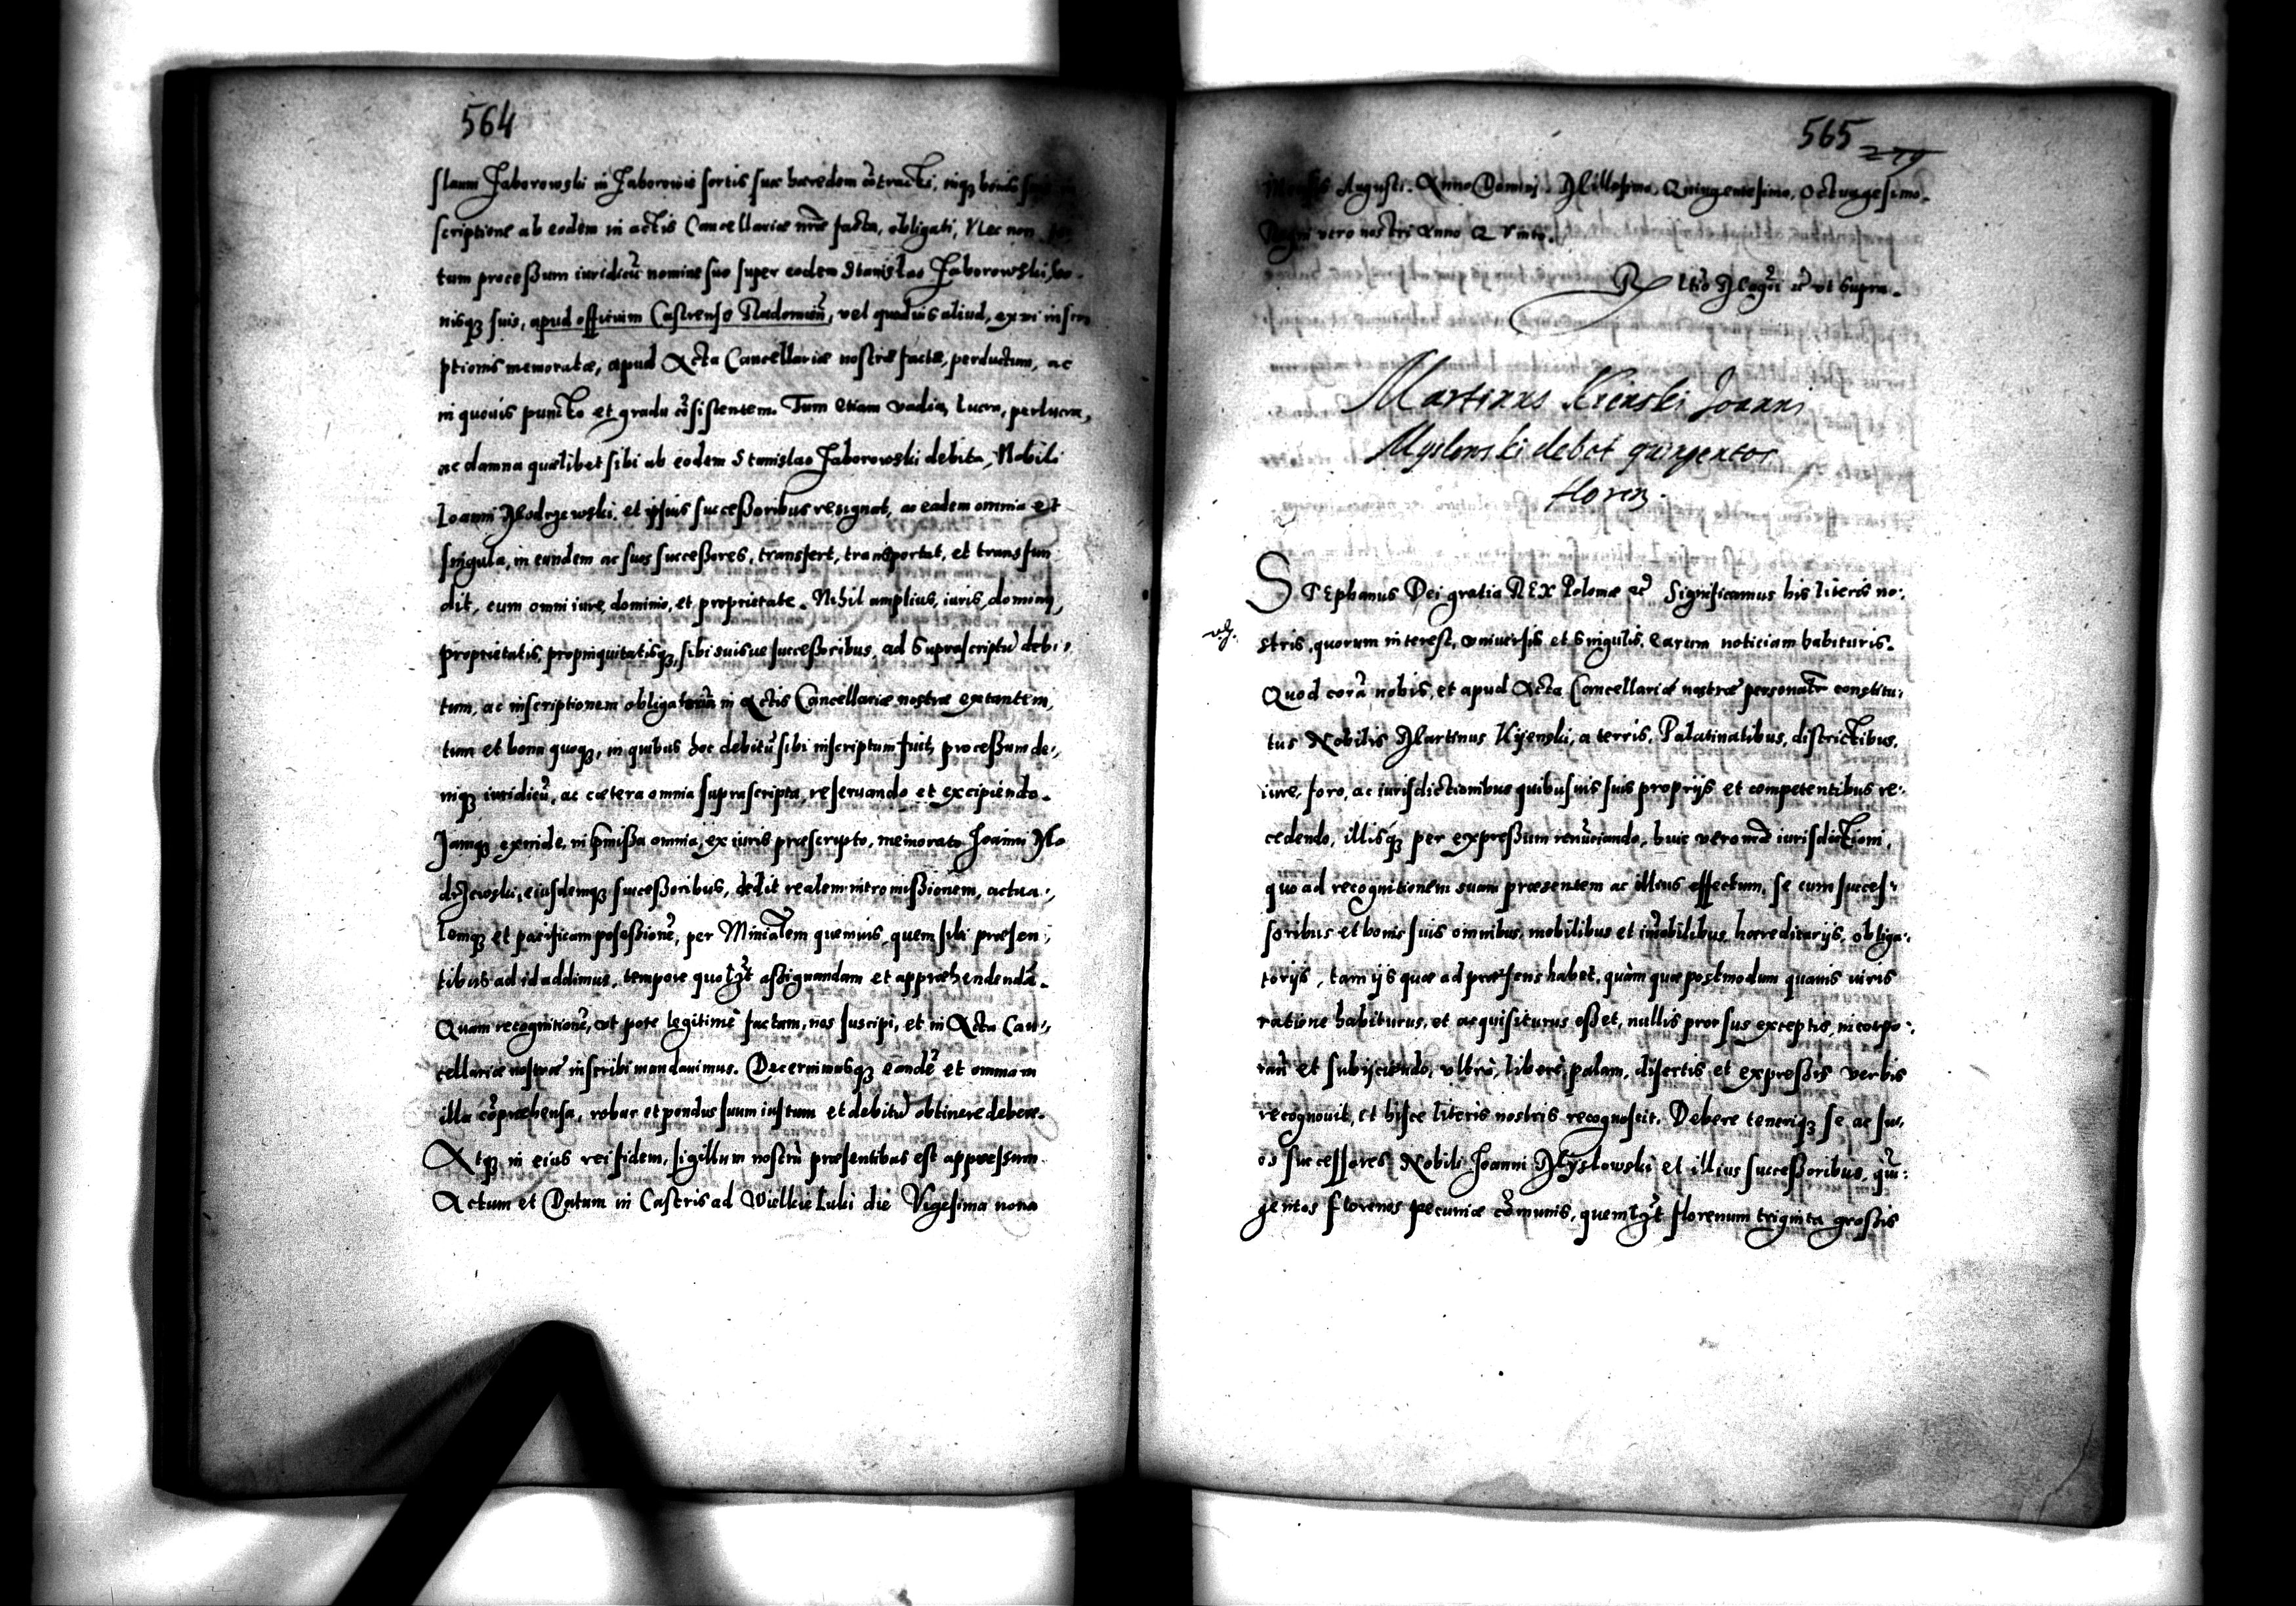 564
slaum Jaborowski in Jaborowie sortis suæ hæredem cōtracti, inq3 bonis
scriptione ab eodem in actis Cancellariæ nræ facta, obligati, Nec non
tum processum iuridicū nomine suo super eodem Stanislao Jaborowski, bo-
nisq3 suis, apud officium Castrense Radomien̄, vel quoduis aliud, ex vi inscri
ptionis memoratæ, apud Acta Cancellariæ nostræ factæ, perductum, ac
in quouis puncto et gradu cōsistentem. Tum etiam vadia, lucra, perlucra,
ac damna quælibet sibi ab eodem Stanislao Jaborowski debita, Nobili
Ioanni Modrzewski, et ipsius successoribus resignat, ac eadem omnia et
singula, in eundem ac suos successores, transfert, transportat, et transfun
dit, cum omni iure, dominio, et proprietate. Nihil amplius, iuris, dominij,
proprietatis, propinquitatisq3, sibi suisue successoribus, ad suprascriptū debi,
tum, ac inscriptionem obligatoriā in Actis Cancellariæ nostræ extantem,
tum et bona quoq3, in quibus hoc debitū sibi inscriptum fuit, processum de,
niq3 iuridicū, ac cætera omnia suprascripta, reseruando et excipiendo.
Jamq3 exinde, in p̄missa omnia, ex iuris præscripto, memorato Joanni Mo
drzewski, eiusdemq3 successoribus, dedit realem intromissionem, actua,
lemq3 et pacificam posessionē, per Ministerialem quemuis, quem sibi præsen,
tibus ad id addimus, tempore quolzt assignandam et appræhendendā.
Quam recognitionē, vt pote legitimè factam, nos suscipi, et in Acta Can,
cellariæ nostræ inscribi mandauimus. Decernimusq3 eandē et omnia in
illa cōpræhensa, robur et pondus suum iustum et debitū obtinere debere.
Atq3 in eius rei fidem, sigillum nostrū præsentibus est appressum
Actum et Datum in Castris ad Wielkie Luki die Vigesima nona
565
279
Mensis Augusti. Anno Domini. Millesimo, Quingentesimo, Octuagesimo.
Regni vero nostri Anno Quinto.
Rltio Magci etc vt supra.
Martinus Kienski Joanni
Myslowski debet quingentos
floren.
STEphanus Dei gratia REX Poloniæ etc Significamus his literis no,
stris, quorum interest, vniuersis et singulis, earum noticiam habituris.
Quod corā nobis, et apud Acta Cancellariæ nostræ personalr constitu,
tus Nobilis Martinus Kijenski, a terris, Palatinatibus, districtibus,
iure, foro, ac iurisdictionibus quibusuis suis proprijs et competentibus re,
cedendo, illisq3 per expressum renūciando, huic vero nræ iurisdictioni,
quo ad recognitionem suam præsentem ac illius effectum, se cum succes,
soribus et bonis suis omnibus, mobilibus et imobilibus, hæreditarijs, obliga,
torijs, tam ijs quæ ad præsens habet, quàm quæ postmodum quauis iuris
ratione habiturus, et acquisiturus esset, nullis prorsus exceptis, incorpo,
ran̄ et subijciendo, vltrò, liberè, palam, disertis et expressis verbis
recognouit, et hisce literis nostris recognoscit. Debere teneriq3 se ac su,
os successores Nobili Joanni Myslowski et illius successoribus, quī,
gentos florenos pecuniæ cōmunis, quemlzt florenum triginta grossis